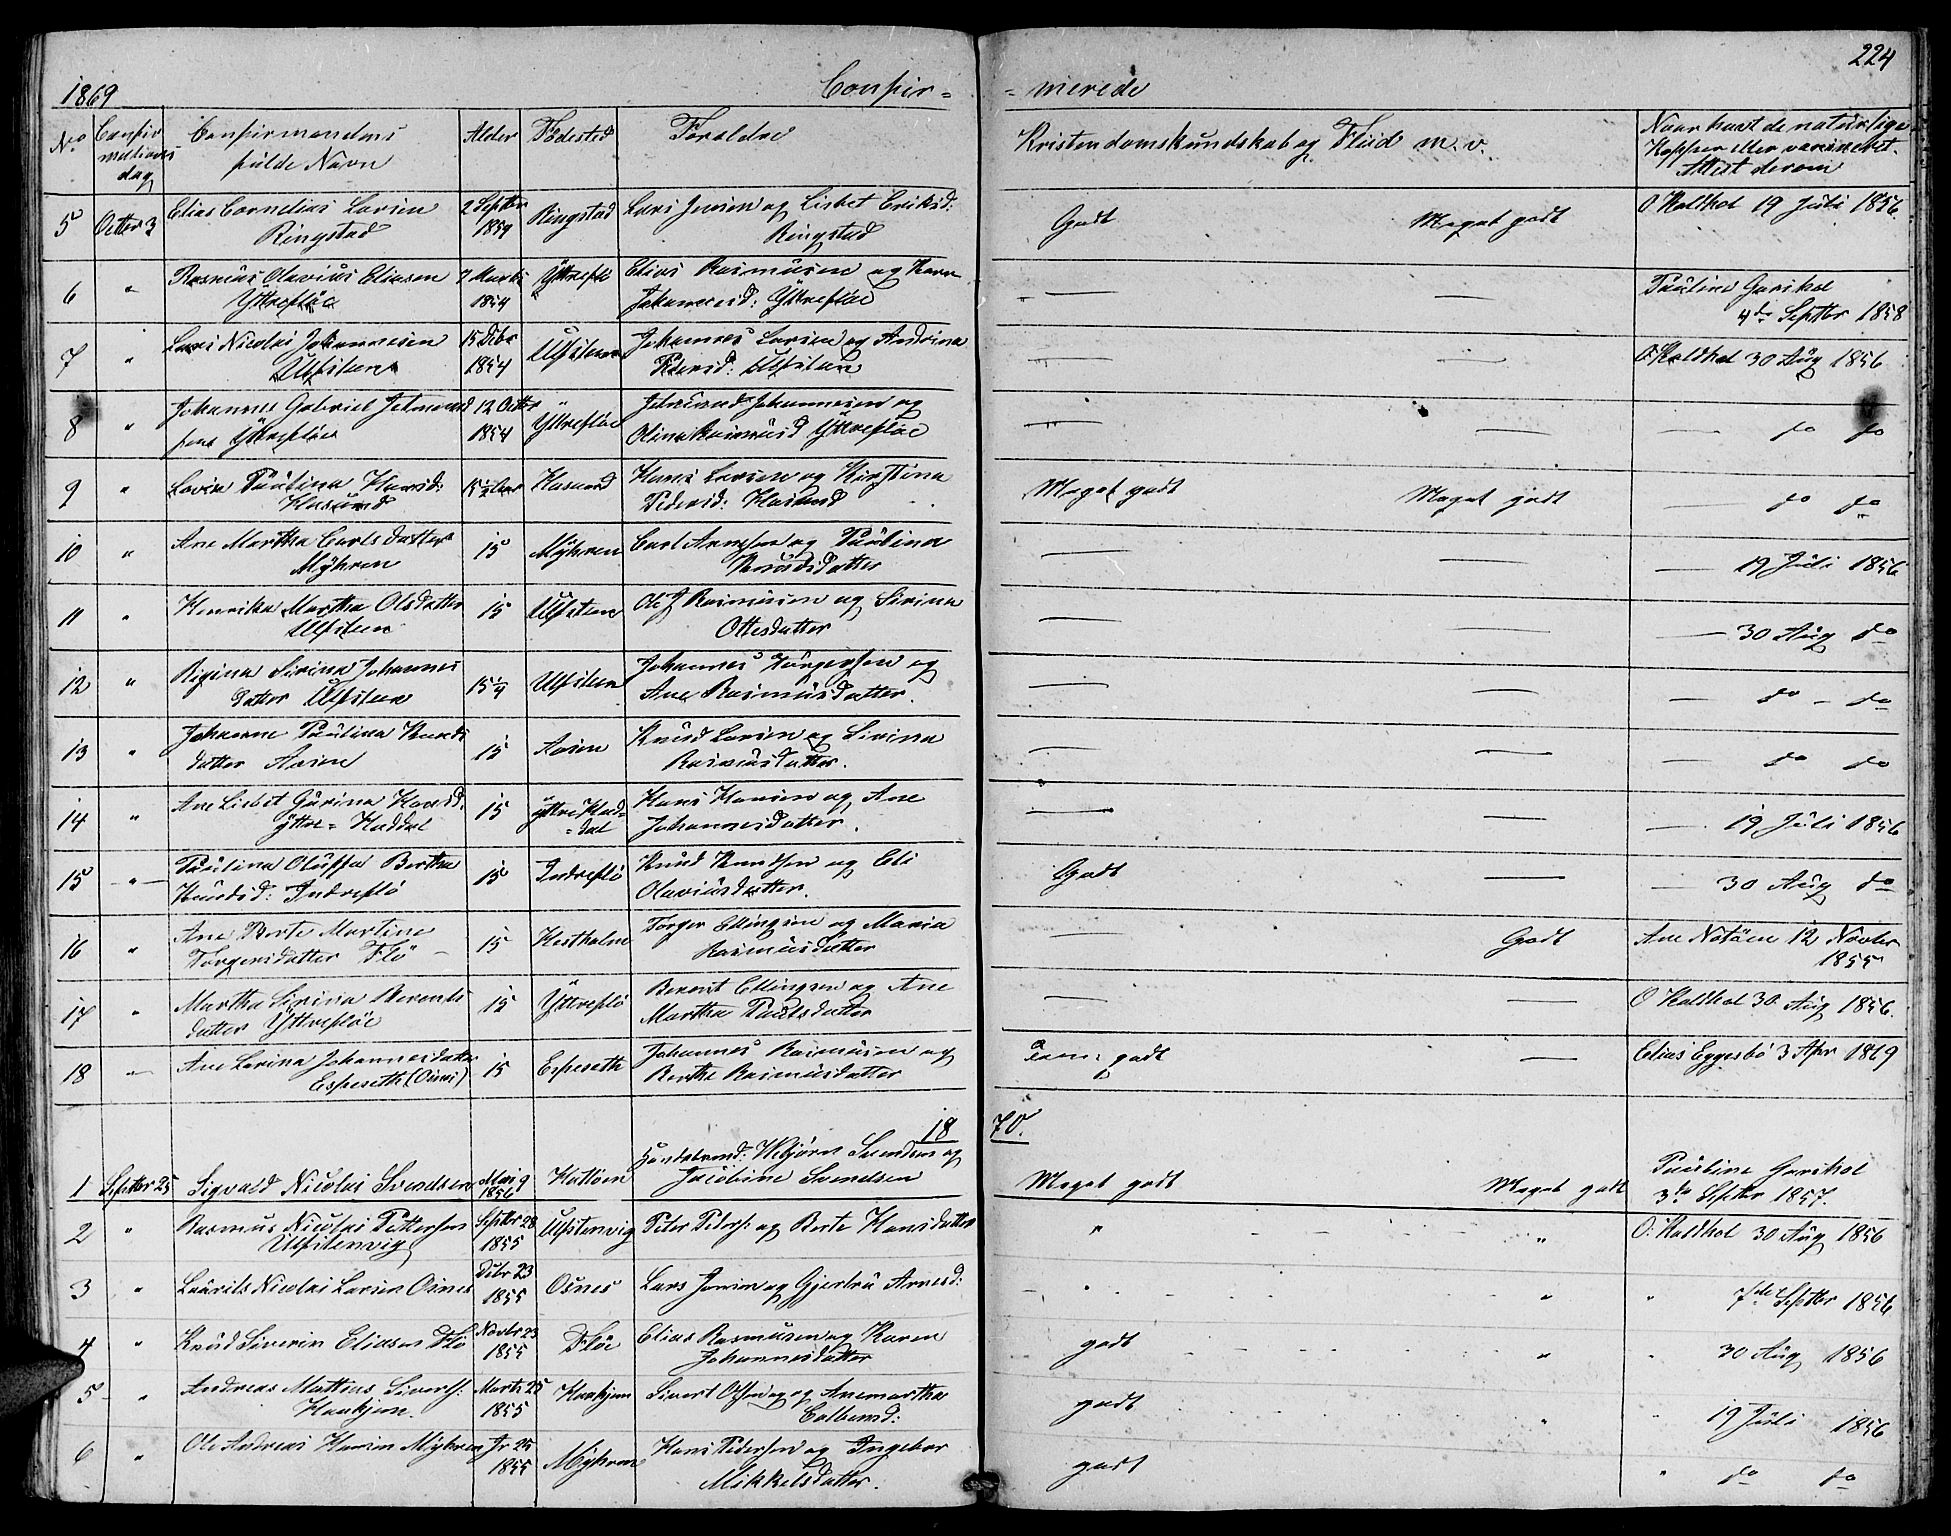 224
1869 Confir= =merede
No Confirmations dag Confirmandens fulde Navn Alder Fødested Forældre Kristendomskundskab og Flid m. v. Naar havt de naturlige Kopper eller vaccineret. Attest derom
5 Octbr 3 Elias Cornelius Larsen Ringstad 2 Septbr 1854 Ringstad Lars Jensen og Lisbet Eriksd: Ringstad Godt Meget godt O Kaldhol 19 Juli 1856
6 " Rasmus Olavius Eliasen Yttrefløe 7 Marts 1854 Yttreflø Elias Rasmusen og Karen Johannesd: Yttrefløe — — Pauline Garshol 4de Septbr 1858
7 " Lars Nicolai Johannesen Ulfsteen 15 Debr 1854 Ulfsteen Johannes Larsen og Andrina Pedersd: Ulfsteen — — O Kaldhol 30 Aug 1856
8 " Johannes Gabriel Jetmund sen Yttrefløe 12 Octbr 1854 Yttrefløe Jetmund Johannesen og Olina Rasmusd Yttrefløe — — — do do
9 " Lovise Paulina Hansd: Hasund 15 1/2 Aar Hasund Hans Larsen og Kirstina Pedersd: Hasund Meget godt Meget godt — do do
10 " Ane Martha Carlsdatter Myhren 15 Myhren Carl Arnesen og Paulina Knudsdatter — — — 19 Juli 1856
11 " Henrika Martha Olsdatter Ulfsteen 15 Ulfsteen Ole J Rasmusen og Sirina Ottesdatter — — — 30 Aug do
12 " Regina Sirina Johannes datter Ulfsteen 15 1/4 Ulfsteen Johannes Törgersen og Ane Rasmusdatter. — — — do - do
13 " Johanne Paulina Knuds datter Aasen 15 Aasen Knud Larsen og Sirina Rasmusdatter. — — — do do
14 " Ane Lisbet Gurina Hansd. yttre=Haddal 15 yttre Had=dal Hans Hansen og Ane Johannesdatter. — — — 19 Juli 1856
15 — " — Paulina Oluffa Berthe Knudsd: Indreflö 15 Indreflö Knud Knudsen og Eli Olaviusdatter. Godt — — 30 Aug do
16 " Ane Berte Martine Torgersdatter Flö — 15 Hestholm Torger Ellingsen og Maria Rasmusdatter — Godt Ane Notöen 12 Novbr 1855
17 " Martha Sirina Berents datter Yttrefløe 15 Yttreflö Berent Ellingsen og Ane Martha Paulsdatter — — O Kaldhol 30 Aug 1856.
18 — Ane Larina Johannesdatter Espeseth (Osnes) 15 Espeseth Johannes Rasmusen og Berthe Rasmusdatter Tem: godt — Elias Eggesbö 3 Apr 1869
1870.
1 Septbr 25 Sigvald Nicolai Svendsen Mai 9 1856 Hattöen Handelsmd: Webjörn Svendsen og Jacobine Svendsen Meget godt Meget godt Pauline Garshol 3de Septbr 1857.
2 " Rasmus Nicolai Pettersen Ulfstenvig Septbr 28 1855 Ulfstenvig Peter Peders: og Berte Hansdatter " " O: Kaldhol 30 Aug 1856
3 " Laurits Nicolai Larsen Osnes Debr 23 1855 Osnes Lars Jensen og Gjertru Arnesd: " " " 7de Septbr 1856
4 " Knud Siverin Eliasen Flö Novbr 23 1855 Fløe Elias Rasmusen og Karen Johannesdatter godt " " 30 Aug 1856
5 " Andreas Matheus Sivers: Haukjem. Marts 25 1855 Haukjem Sivert Olsen og Anemartha godt " " 19 Juli 1856
6 " Ole Andreas Hansen Myhren Jr 25 1855 Myhren Hans Pedersen og Ingebor Mikkelsdatter. godt " do do